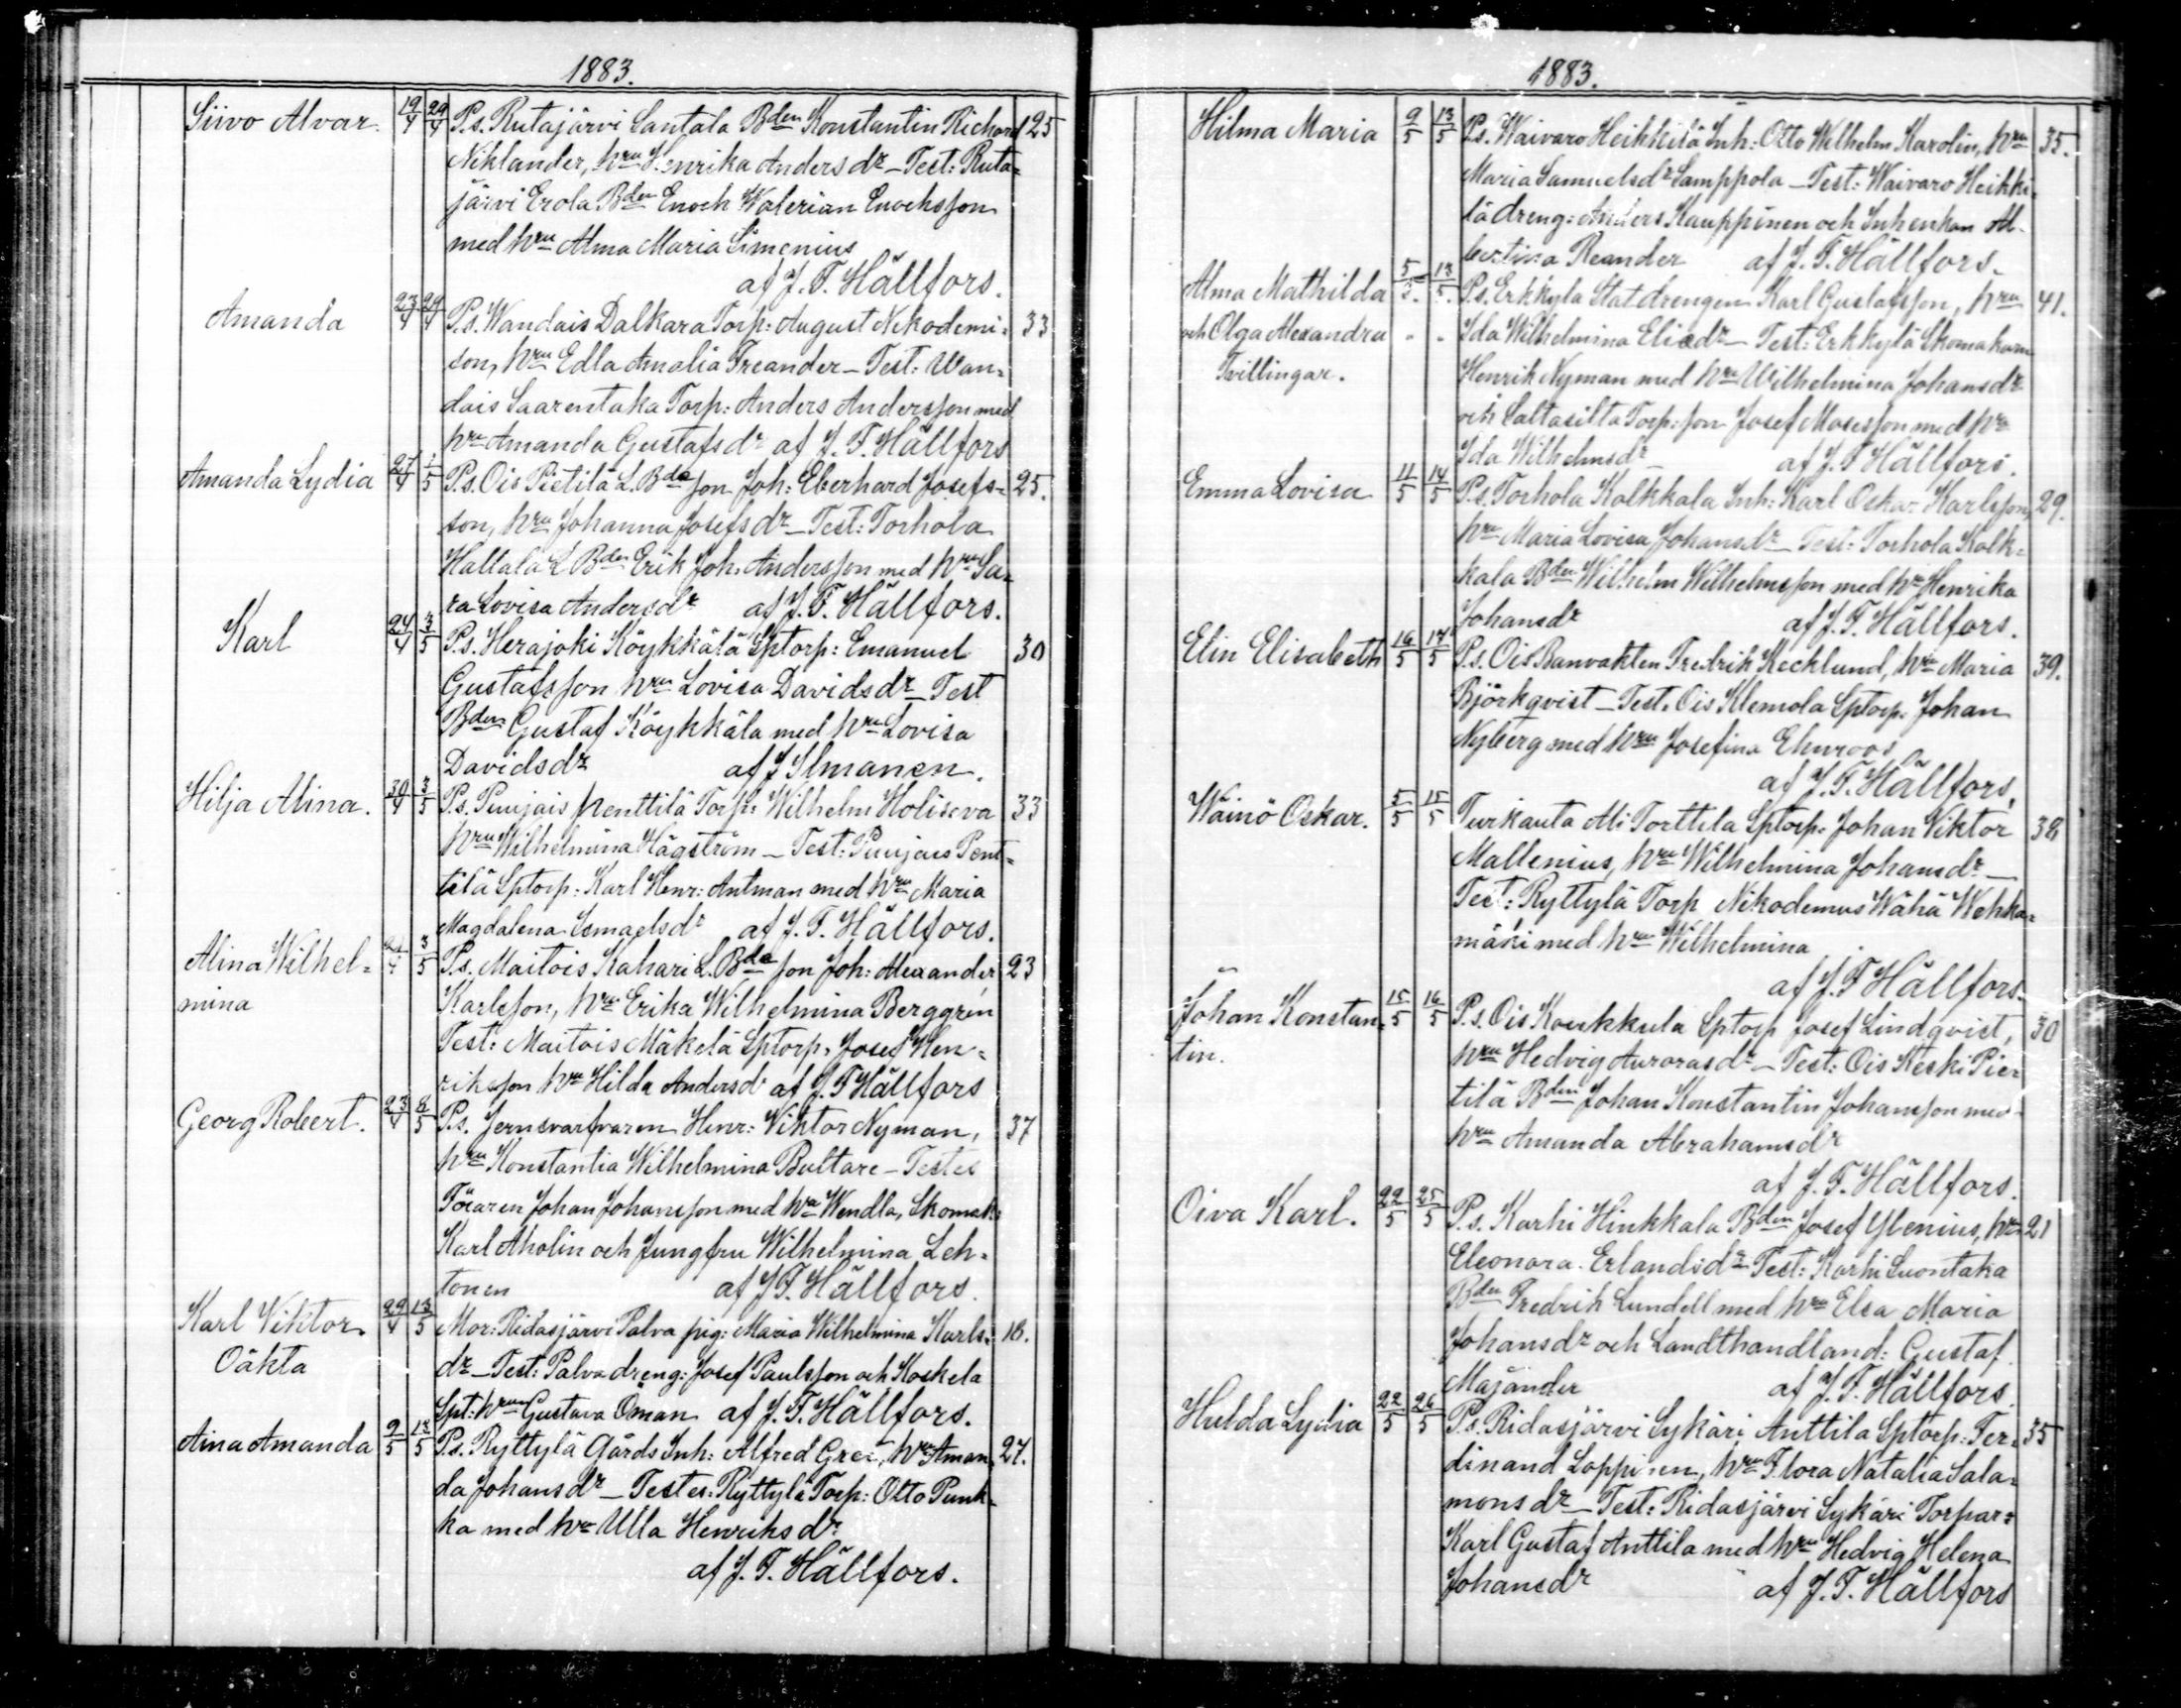 1883.
Siivo Alvar. 19/4 29/4 P.s. Rutajärvi Santala Bden Konstantin Richard 25
Niklander, hru Henrika Andersdr – Test: Ruta=
järvi Erola Bden Enoch Walerian Enochsson
med hru Alma Maria Simenius
af J. F. Hällfors.
Amanda 23/4 29/4 P.s. Wandais Dalkara Torp: August Nikodemi= 33
son, hru Edla Amalia Freander – Test: Wan=
dais Saarentaka Torp: Anders Andersson med
hru Amanda Gustafsdr af J. F. Hällfors
Amanda Lydia 27/4 1/5 P.s. Ois Pietilä L. Bde son Joh: Eberhard Josefs= 25.
son, hru Johanna Josefsdr – Test: Torhola
Hallala L Bden Erik Joh. Andersson med hru Sa=
ra Lovisa Andersdr af J. F. Hällfors.
Karl 24/4 3/5 P.s. Herajoki Köykkälä Sptorp: Emanuel 30
Gustafsson hru Lovisa Davidsdr – Test
Bden Gustaf Köykkälä med hru Lovisa
Davidsdr af J Ilmanen.
Hilja Alina. 30/4 3/5 P.s. Puujais Penttilä Torp: Wilhelm Holiseva 33
hru Wilhelmina Hägström – Test: Puujais Pent=
tilä Sptorp: Karl Henr: Antman med hru Maria
Magdalena Ismaelsdr af J. F. Hällfors.
Alina Wilhel= 3/5 P.s. Maitois Kahari L. Bde son Joh: Alexander 23
mina Karlsson, hru Erika Wilhelmina Berggrén
Test: Maitois Mäkelä Sptorp. Josef Hen=
riksson hru Hilda Andersdr af J. F Hällfors
Georg Robert. 23/4 8/5 P.s. Jernsvarfvaren Henr: Viktor Nyman, 37
hru Konstantia Wilhelmina Bultare – Testes
Johan Johansson med hru Wendla, Skomak:
Karl Aholin och Jungfru Wilhelmina Leh=
tonen af J. F. Hällfors.
Karl Viktor 29/4 13/5 Mor: Ridasjärvi Palva pig: Maria Wilhelmina Karls= 18.
Oäkta dr – Test: Palva dreng: Josef Paulsson och Koskela
Spt: hru Gustava Öman af J. F. Hällfors.
Aina Amanda 9/5 13/5 P.s. Ryttylä Gårds Inh: Alfred Grei, hru Aman= 27.
da Johansdr – Testes: Ryttylä Torp: Otto Punk=
ka med hru Ulla Henriksdr
af J. F. Hällfors.
1883.
Hilma Maria 9/5 13/5 P.s. Waivaro Heikkilä Inh: Otto Wilhelm Karolin, hru 35.
Maria Samuelsdr Samppola – Test: Waivaro Heikki=
lä dreng: Anders Kauppinen och Inhenkan Al=
bertina Reander af J. F. Hällfors.
Alma Mathilda 5/5. 13/5. P.s. Erkkylä Statdrengen Karl Gustafsson, hru 41.
och Olga Alexandra " " Ida Wilhelmina Eliædr – Test: Erkkylä Skomakarn
Tvillingar. Henrik Nyman med hru Wilhelmina Johansdr
och Saltasilta Torp: son Josef Mosesson med hru
Ida Wilhelmsdr – af J. F Hällfors.
Emma Lovisa 11/5 14/5 P.s. Torhola Kalkkala Inh: Karl Oskar Karlsson, 29.
hru Maria Lovisa Johansdr – Test: Torhola Kalk=
kala Bden Wilhelm Wilhelmsson med hru Henrika
Johansdr af J. F. Hällfors.
Elin Elisabeth 16/5 17/5 P.s. Ois Banvakten Fredrik Kecklund, hru Maria 39.
Björkqvist – Test. Ois Klemola Sptorp. Johan
Nyberg med hru Josefina Elmroos
af J. F. Hällfors.
Wäinö Oskar. 5/5 15/5 Turkauta Ali Torttila Sptorp. Johan Viktor 38
Mallenius, hru Wilhelmina Johansdr –
Test: Ryttylä Torp Nikodemus Wähä Wehka=
mäki med hru Wilhelmina
af J. F Hällfors.
Johan Konstan= 15/5 16/5 P.s. Ois Koukkula Sptorp Josef Lindqvist, 30
tin. hru Hedvig Aurorasdr – Test: Ois Keski Pie=
tilä Bden Johan Konstantin Johansson med
hru Amanda Abrahamsdr
af J. F. Hällfors.
Oiva Karl. 22/5 25/5 P.s. Karhi Hinkkala Bden Josef Ylenius, hru 21
Eleonora Erlandsdr Test: Karhi Luontaka
Bden Fredrik Lundell med hru Elsa Maria
Johansdr och Landthandland: Gustaf
Majander af J. F. Hällfors
Hulda Lydia 22/5 26/5 P.s. Ridasjärvi Sykäri Anttila Sptorp: Fer= 35
dinand Loppinen, hru Flora Natalia Sala=
monsdr – Test: Ridasjärvi Sykäri Torpar=
Karl Gustaf Anttila med hru Hedvig Helena
Johansdr af J. F. Hällfors